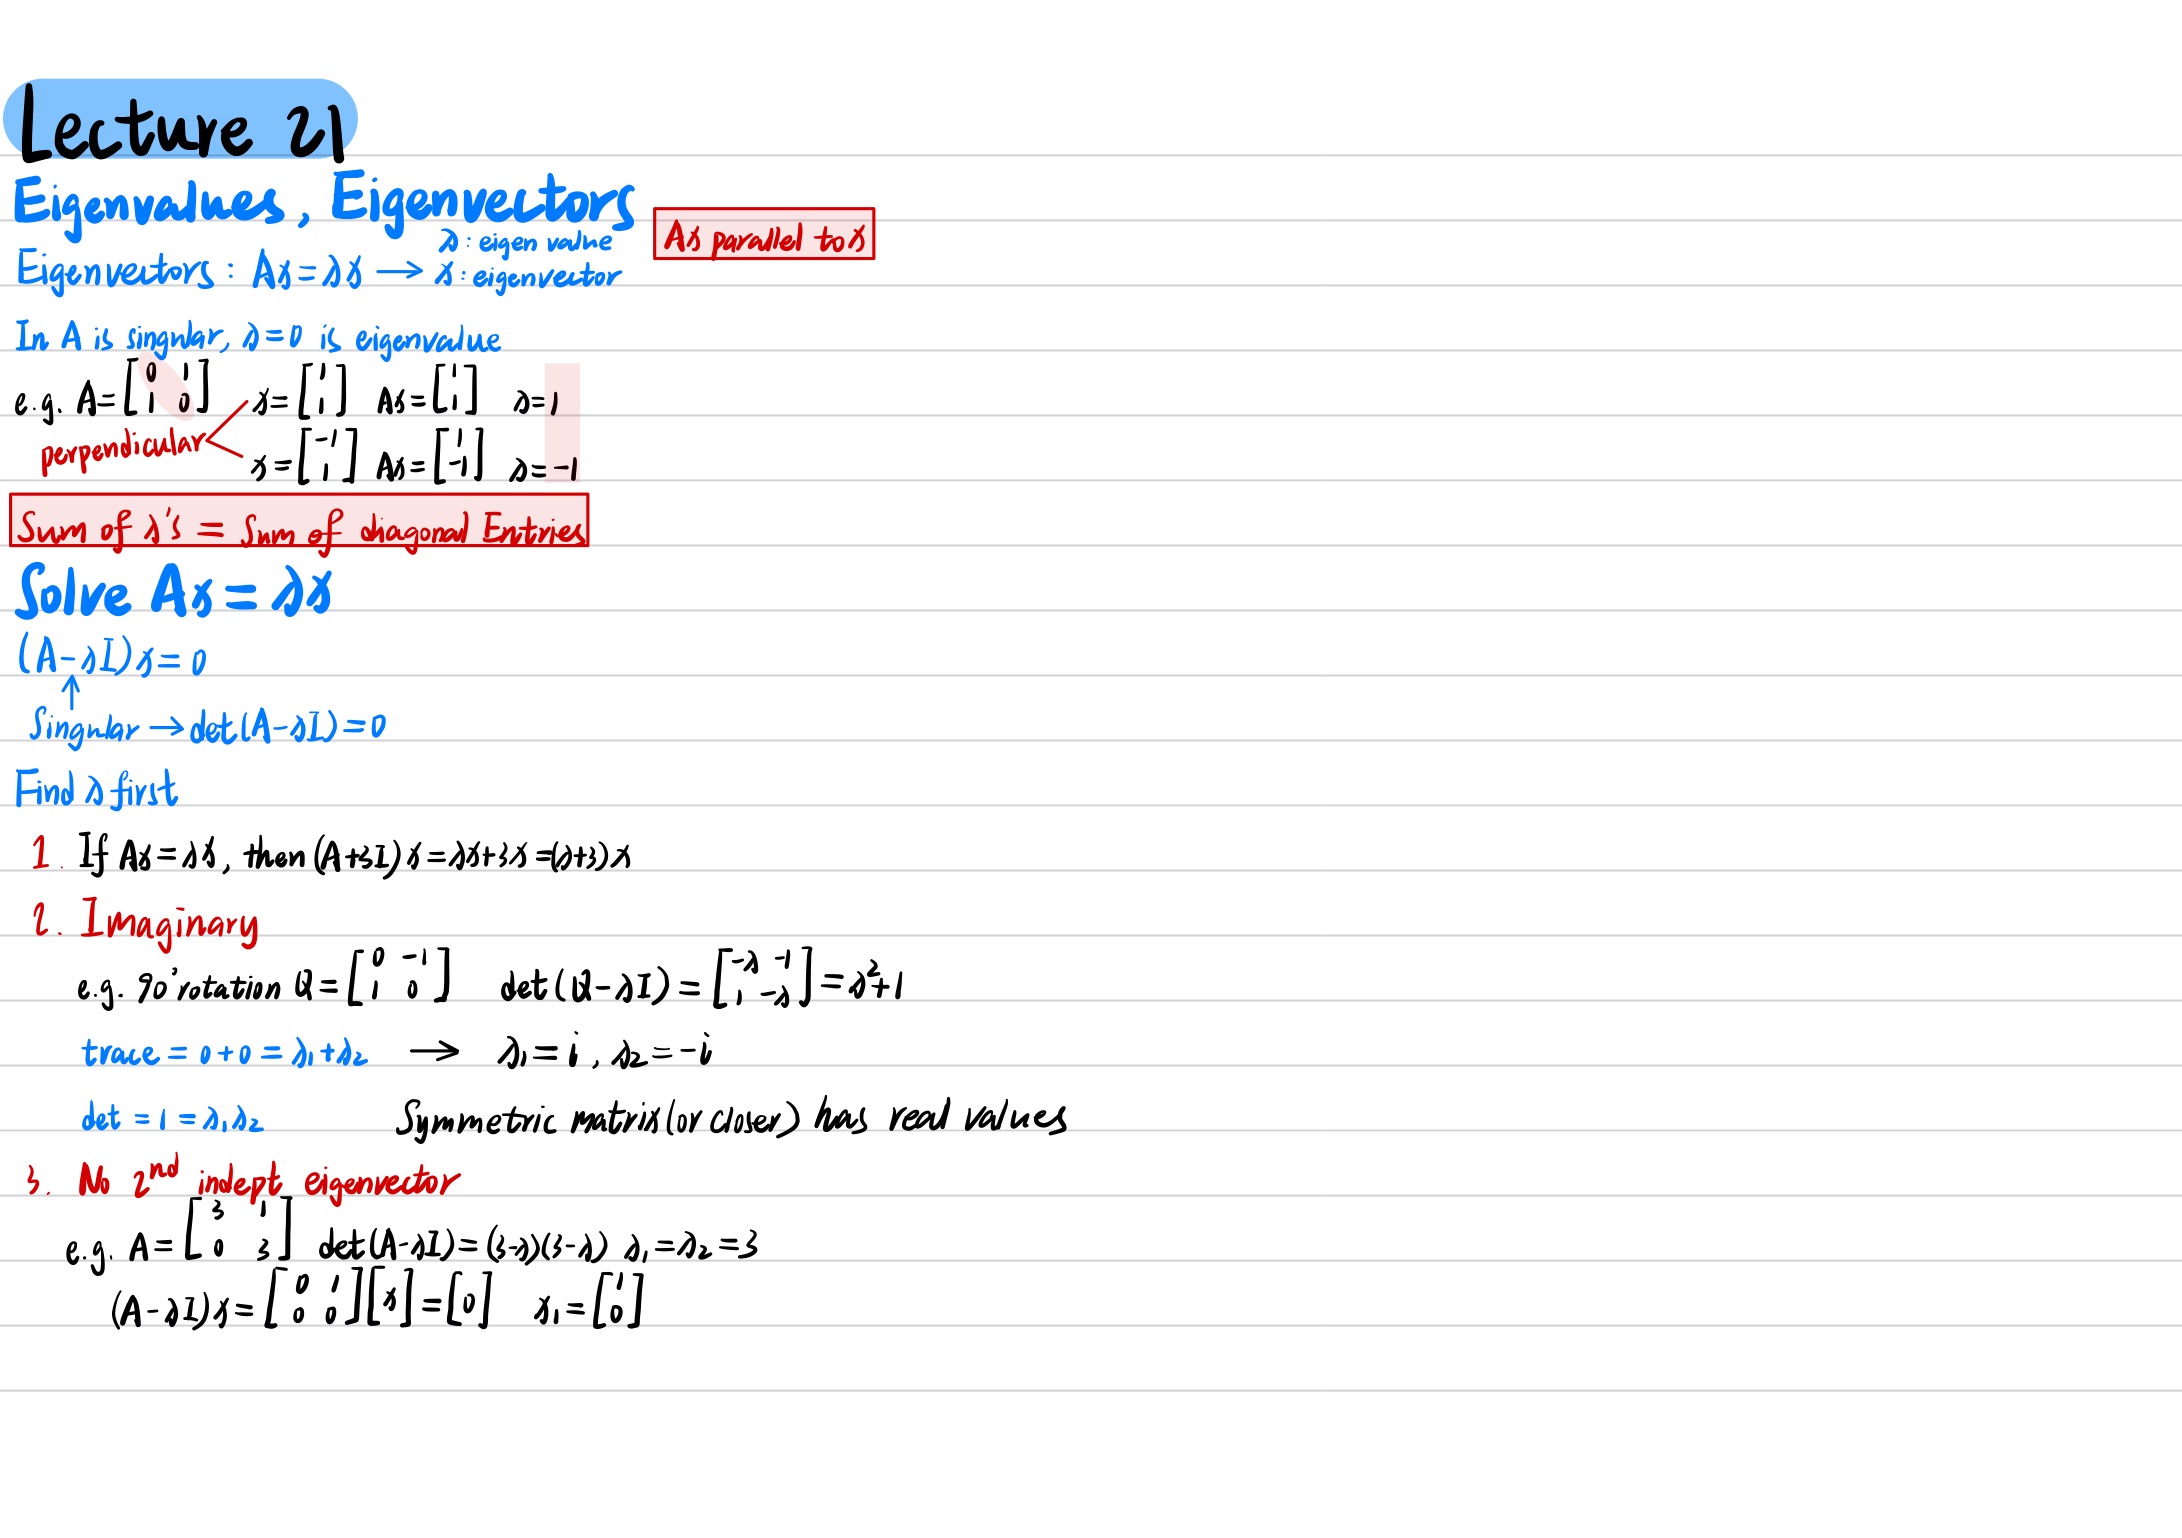 Lecture 21
Eigenvalues, Eigenvectors
Ax parallel to x
λ: eigen value
Eigenvectors: Ax = λx → x: eigenvector
In A is singular, λ=0 is eigenvalue
e.g. A = [0 1; 1 0] x = [1; 1] Ax = [1; 1] λ = 1
perpendicular
x = [-1; 1] Ax = [1; -1] λ = -1
Sum of λ's = Sum of diagonal Entries
Solve Ax = λx
(A-λI)x = 0
↑
Singular → det(A-λI) = 0
Find λ first
1. If Ax = λx, then (A+3I)x = λx+3x = (λ+3)x
2. Imaginary
e.g. 90° rotation Q = [0 -1; 1 0] det(Q-λI) = [-λ -1; 1 -λ] = λ²+1
trace = 0+0 = λ₁+λ₂ → λ₁ = i, λ₂ = -i
det = 1 = λ₁λ₂ Symmetric matrix (or closer) has real values
3. No 2nd indept eigenvector
e.g. A = [3 1; 0 3] det(A-λI) = (3-λ)(3-λ) λ₁ = λ₂ = 3
(A-λI)x = [0 1; 0 0][x] = [0] x₁ = [1; 0]